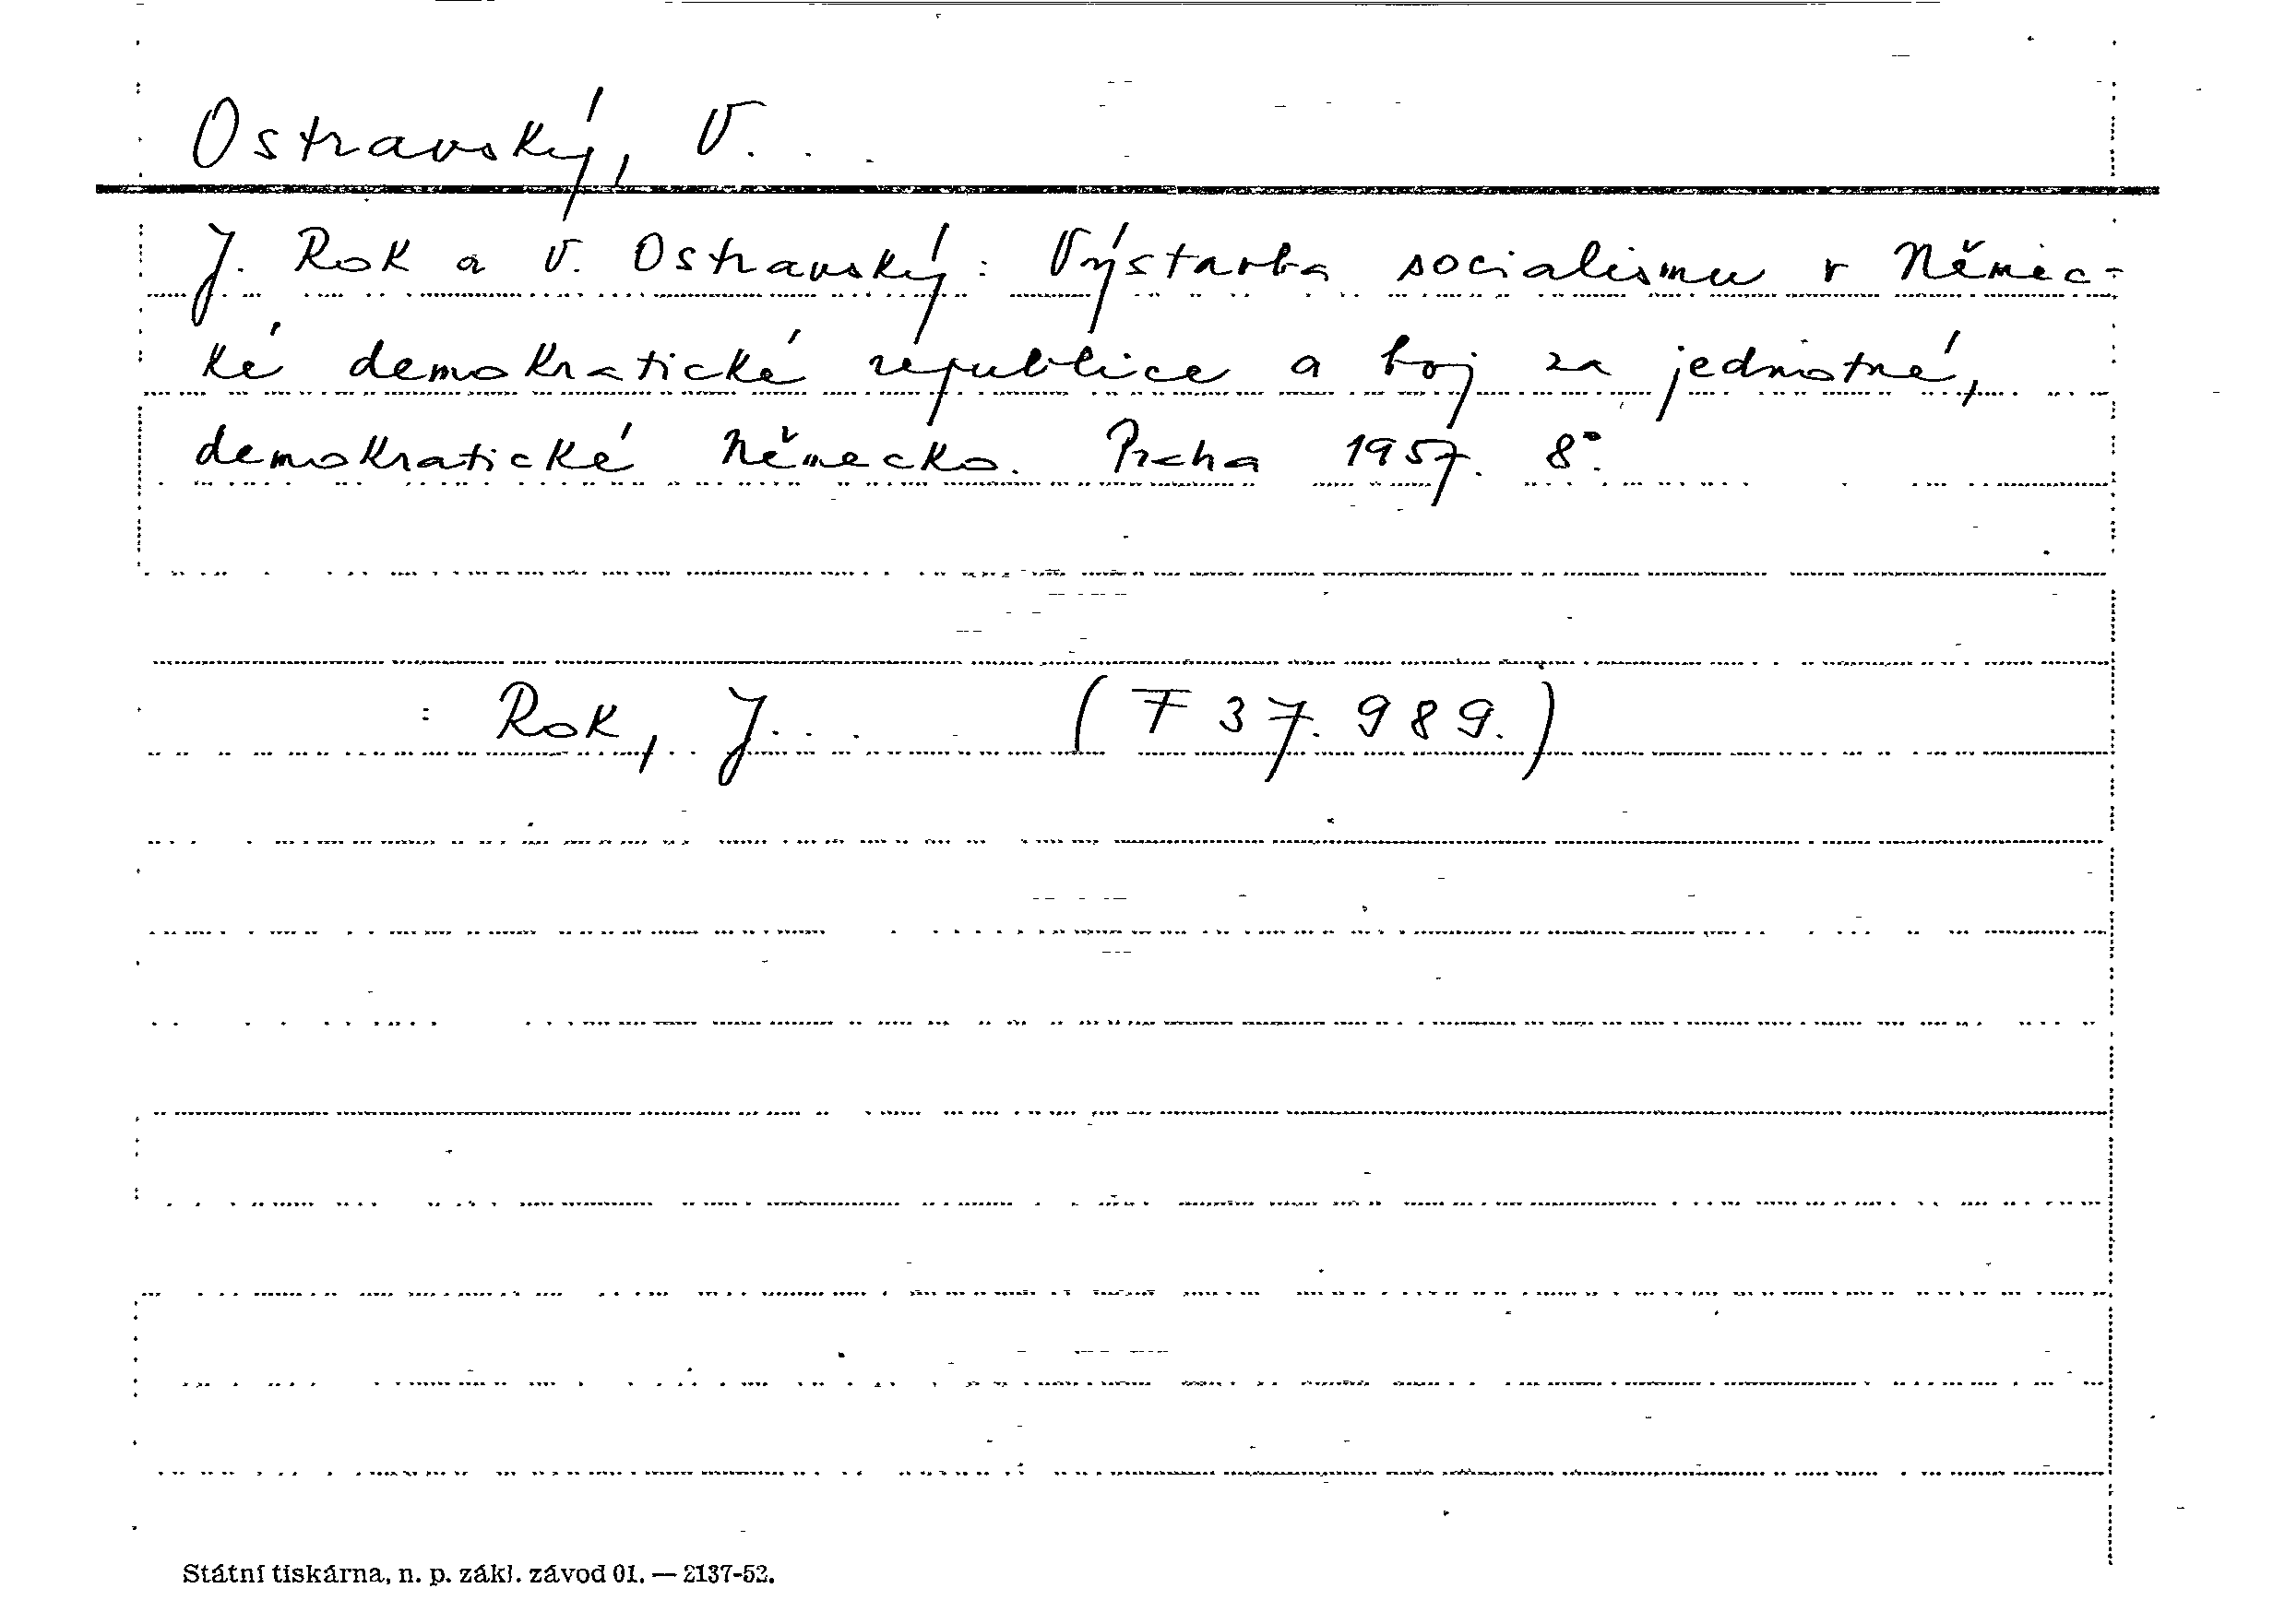 Ostravský, V. . .
J. Rok a V. Ostravský: Výstavba socialismu v Němec-
ké demokratické republice a boj za jednotné,
demokratické Německo. Praha 1957. 8°.
: Rok, J. . . (F 37.989.)
Státní tiskárna, n. p. zákl. závod 01. — 2137-52.